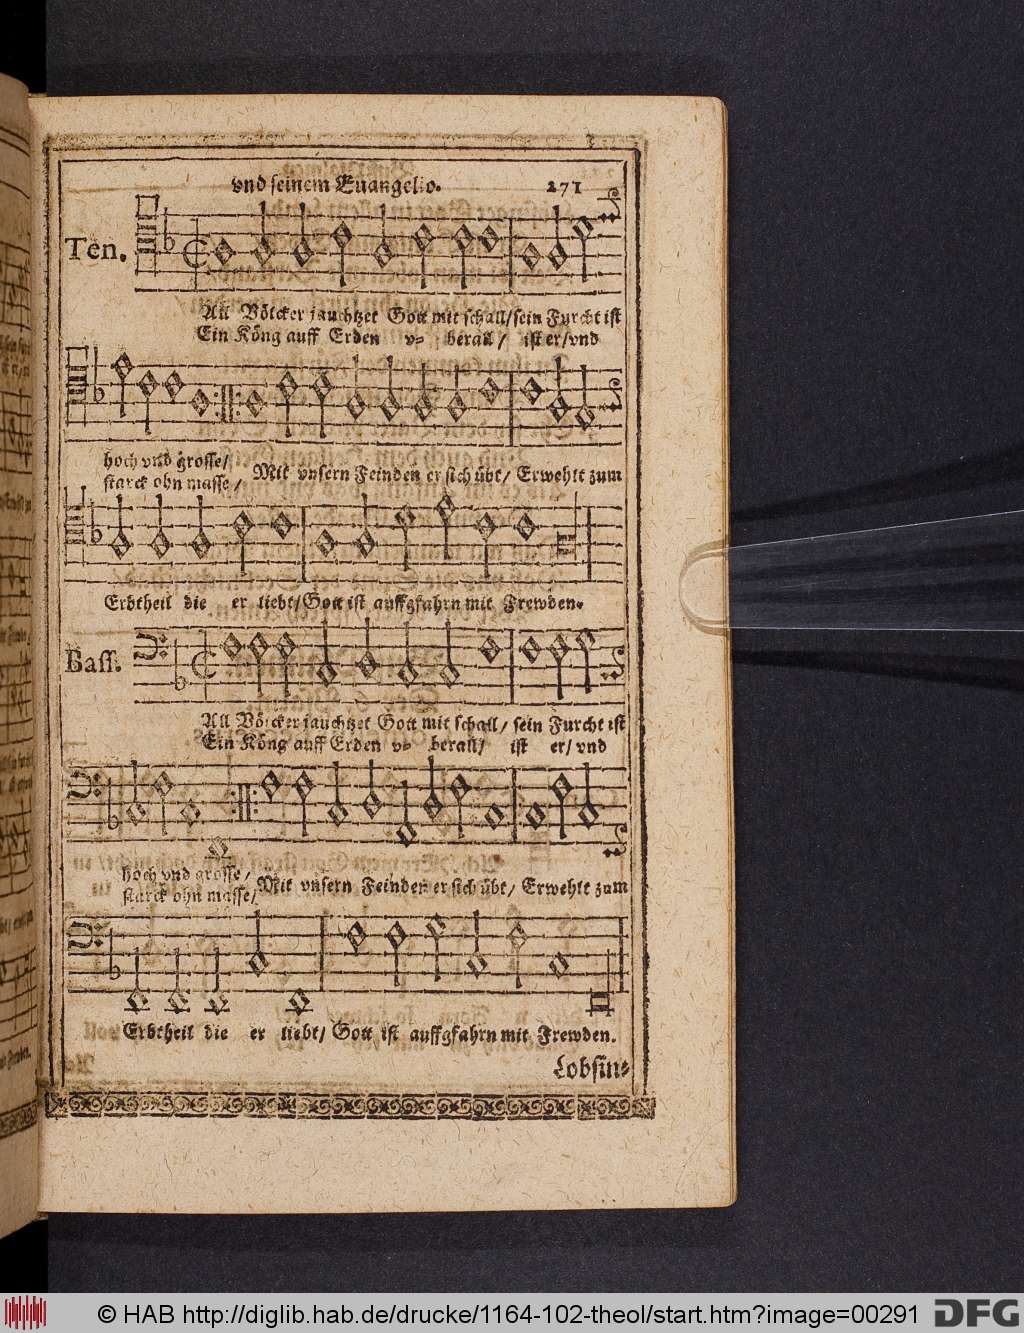 vnd seinem Euangelio. 271
Ten.
All Völcker jauchtzet Gott mit schall/sein Furcht ist
Ein Köng auff Erden v⸗ berall/ ist er/vnd
hoch vnd grosse/
starck ohn masse/ Mit vnsern Feinden er sich übt/ Erwehlt zum
Erbtheil die er liebt/Gott ist auffgfahrn mit Frewden.
Bass.
All Völcker jauchtzet Gott mit schall/ sein Furcht ist
Ein Köng auff Erden v⸗ berall/ ist er/ vnd
hoch vnd grosse/
starck ohn masse/ Mit vnsern Feinden er sich übt/ Erwehlt zum
Erbtheil die er liebt/ Gott ist auffgfahrn mit Frewden.
Lobsin⸗
© HAB http://diglib.hab.de/drucke/1164-102-theol/start.htm?image=00291 DFG